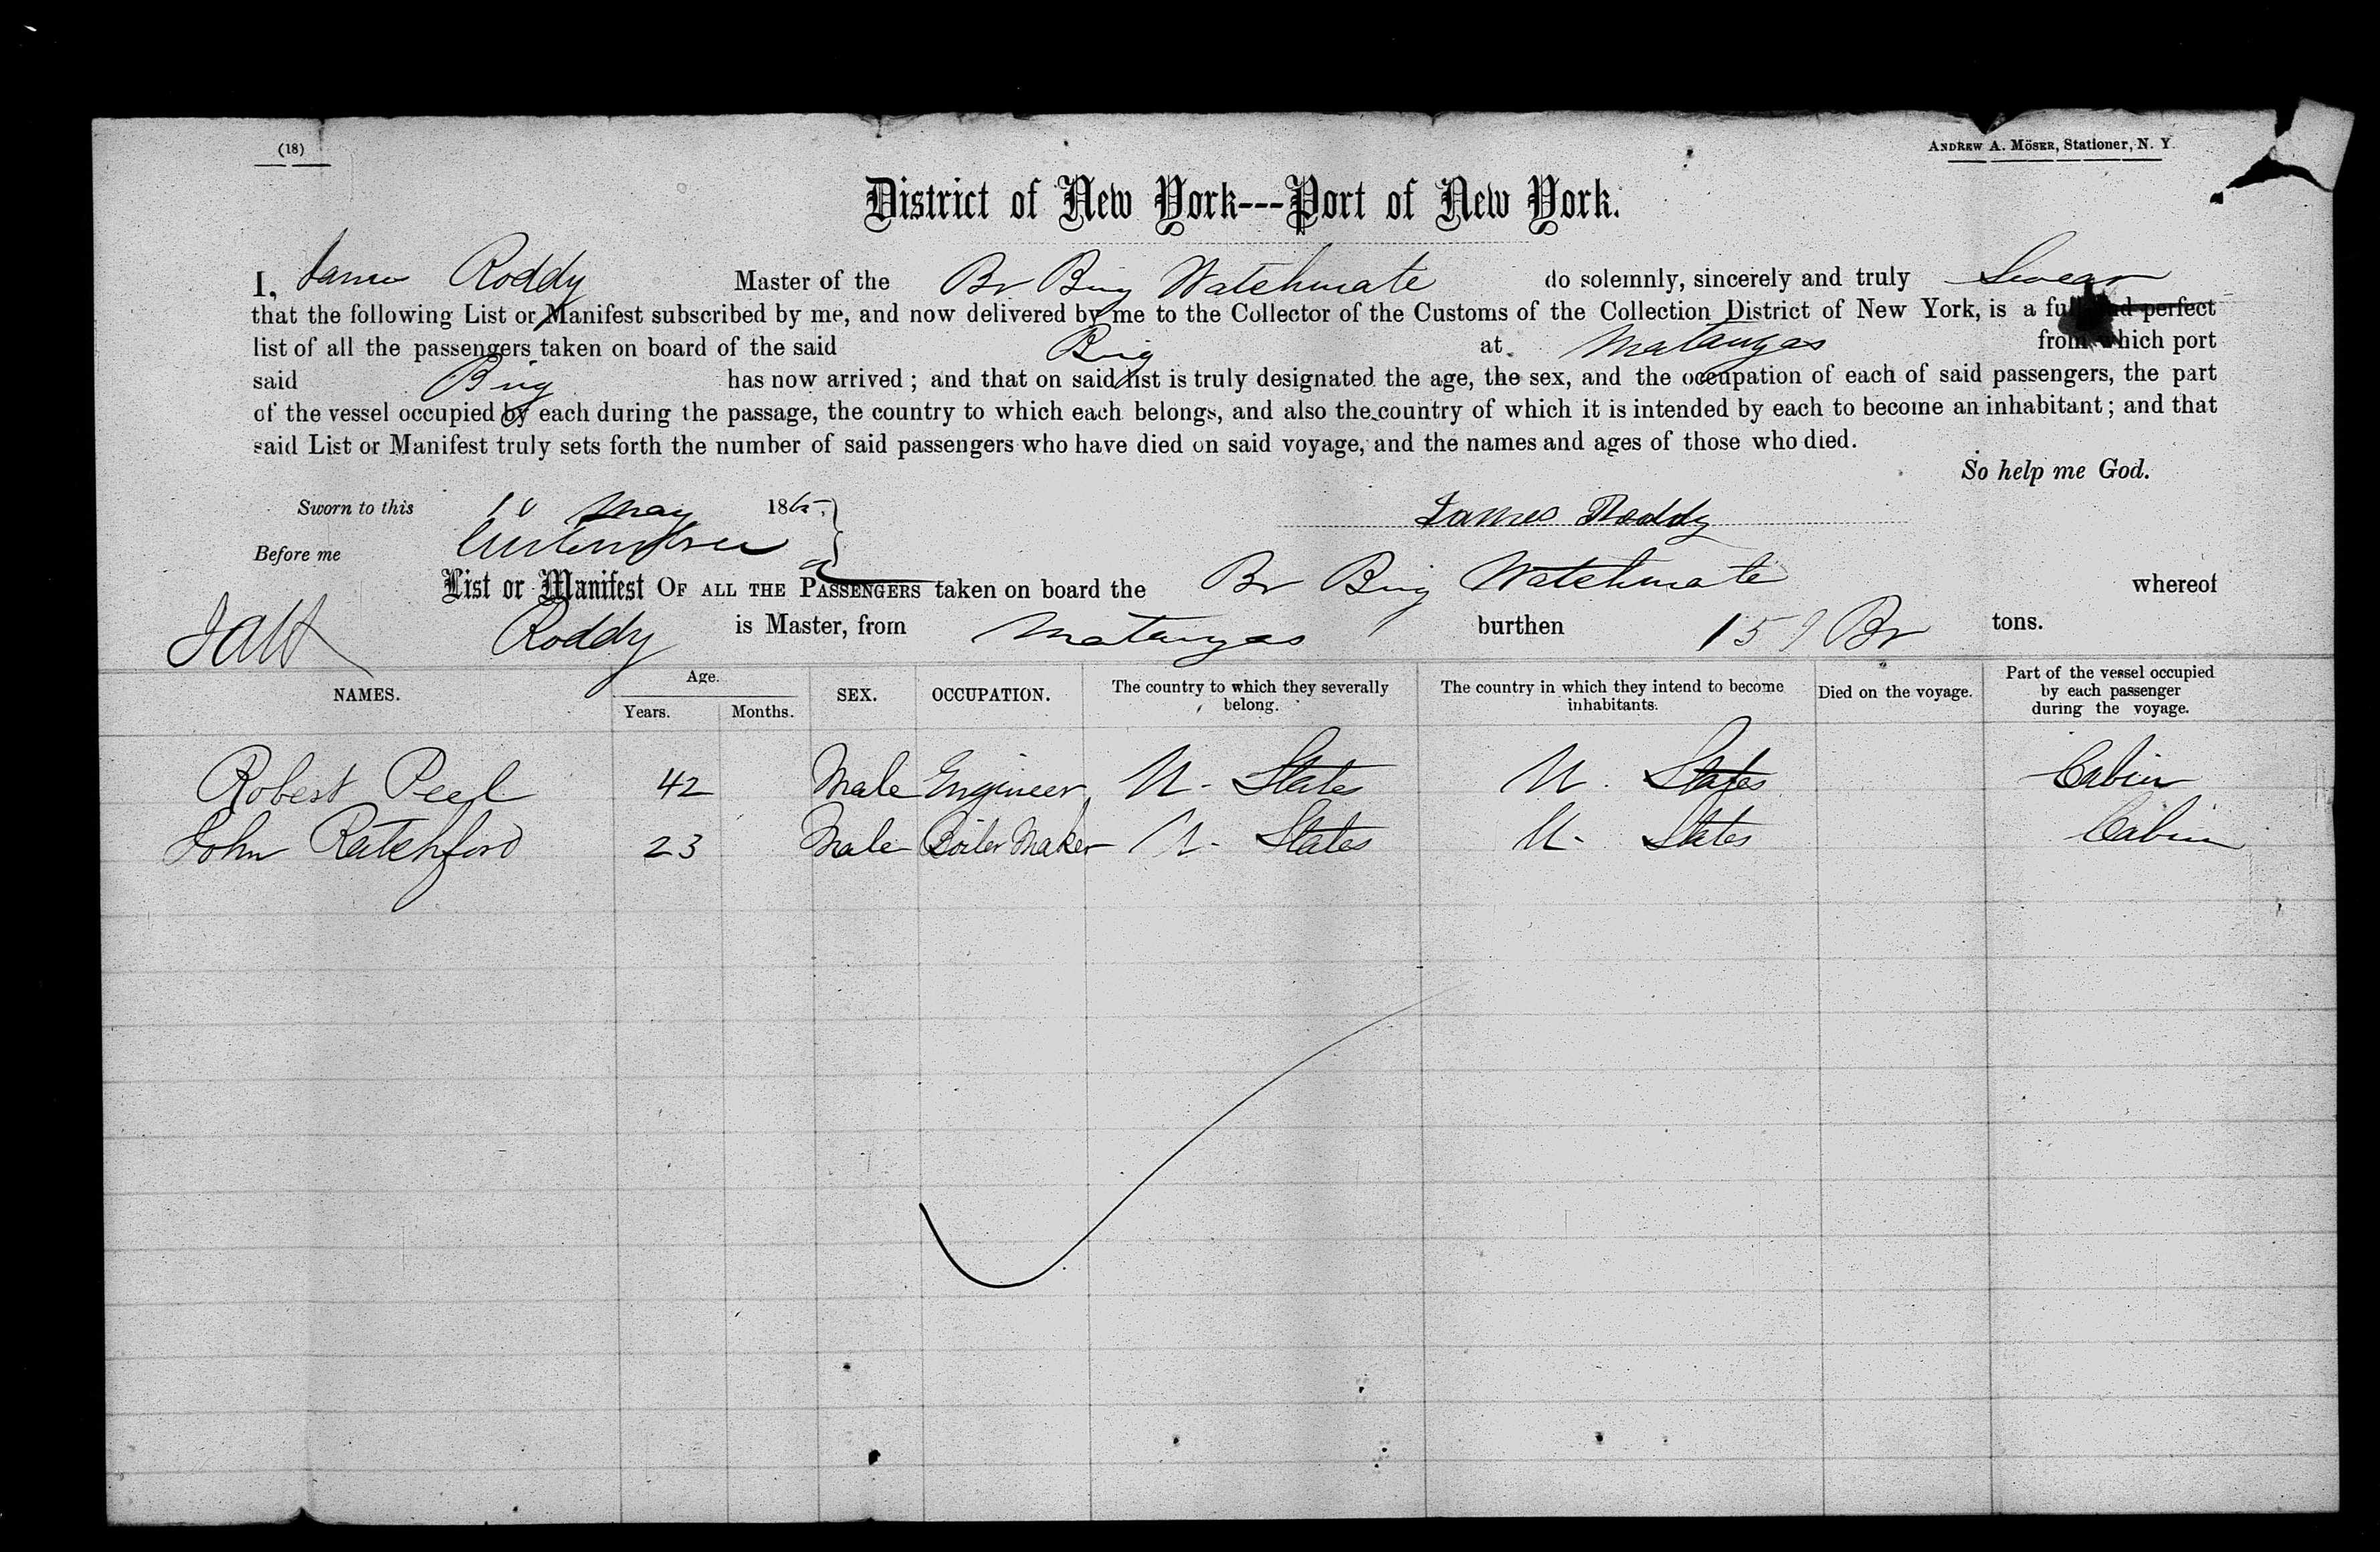 (18)
ANDREW A. MÖSER, Stationer, N. Y.
District of New York---Port of New York.
I, James Roddy Master of the Br Brig Watchmate do solemnly, sincerely and truly Swear
that the following List or Manifest subscribed by me, and now delivered by me to the Collector of the Customs of the Collection District of New York, is a full and perfect
list of all the passengers taken on board of the said Brig at Matanzas from which port
said Brig has now arrived; and that on said list is truly designated the age, the sex, and the occupation of each of said passengers, the part
of the vessel occupied by each during the passage, the country to which each belongs, and also the country of which it is intended by each to become an inhabitant; and that
said List or Manifest truly sets forth the number of said passengers who have died on said voyage, and the names and ages of those who died.
So help me God.
Sworn to this 10 May 1865. James Roddy
Before me
List or Manifest OF ALL THE PASSENGERS taken on board the Br Brig Watchmate whereof
Roddy is Master, from Matanzas burthen 159 Br tons.
NAMES. Age. Years. Months. SEX. OCCUPATION. The country to which they severally belong. The country in which they intend to become inhabitants. Died on the voyage. Part of the vessel occupied by each passenger during the voyage.
Robert Peel 42 Male Engineer U. States U. States Cabin
John Ratchford 23 Male Boiler Maker U. States U. States Cabin